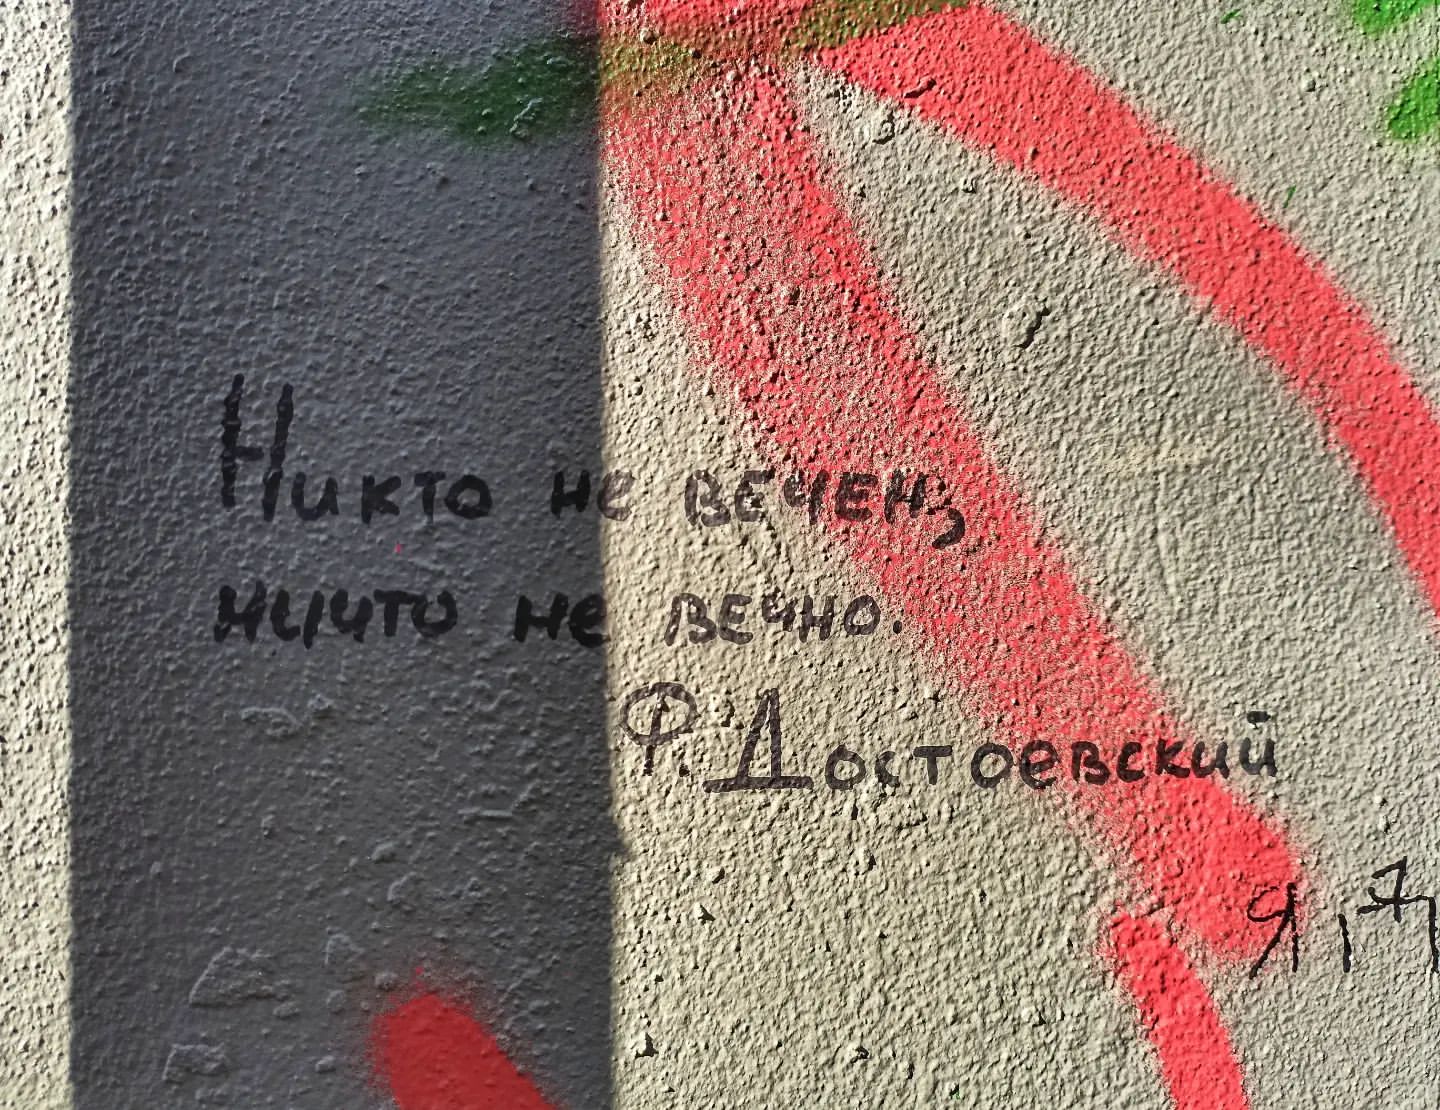 Никто не вечен,
ничто не вечно.
Ф. Достоевский